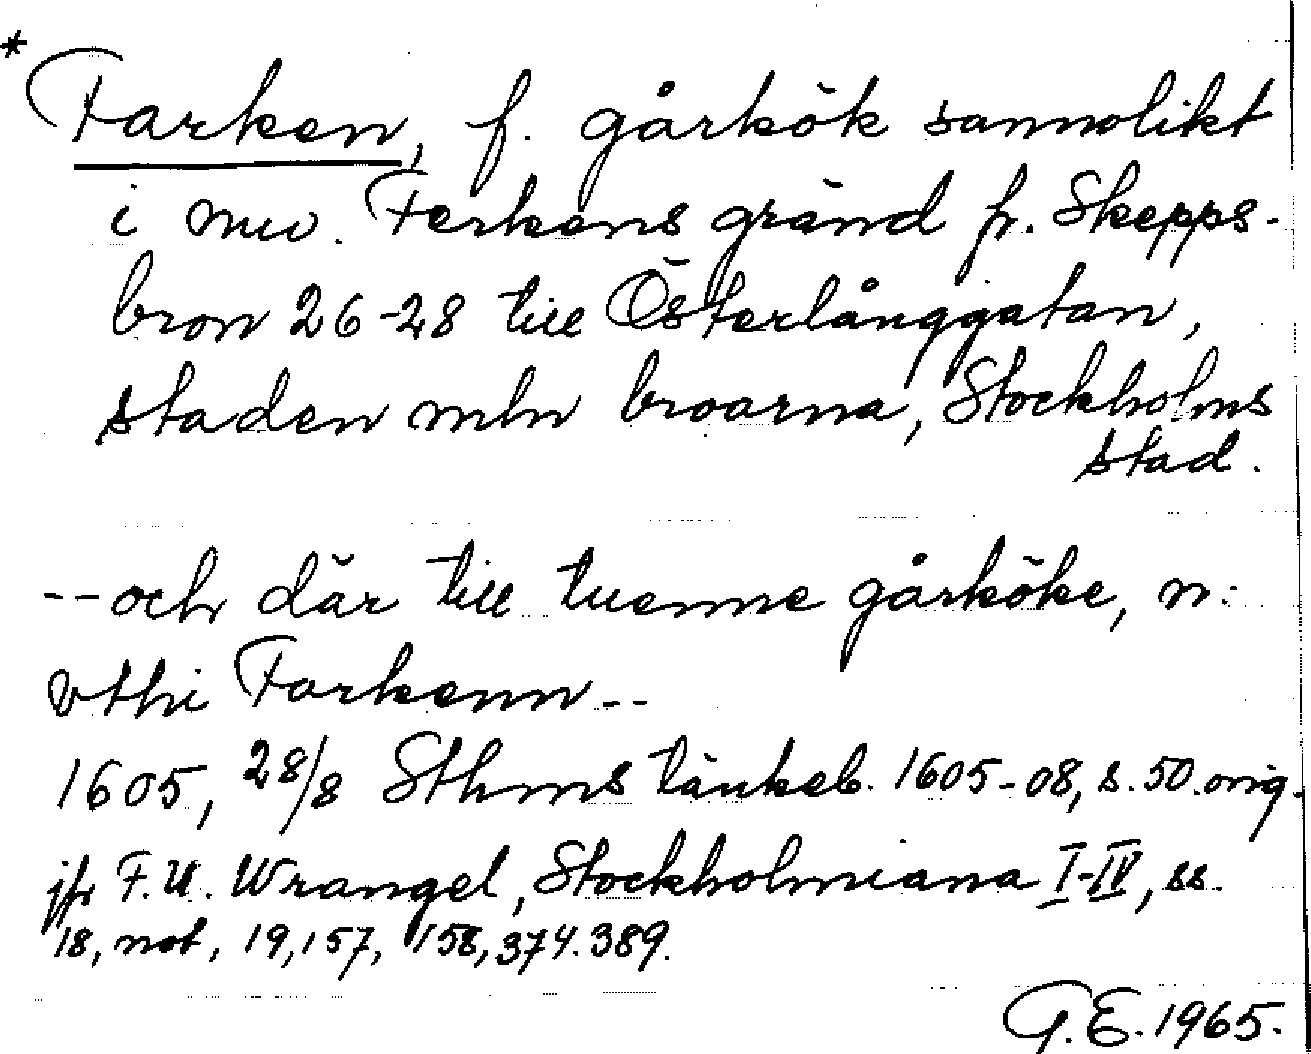 *
Farken, f. gårkök sannolikt
i nuv. Ferkens gränd fr. Skepps-
bron 26-28 till Österlånggatan,
staden mln broarna, Stockholms
stad.
--och där till tuenne gårköke, n:
vthi Farkenn--
1605, 28/8 Sthms tänkeb. 1605-08, s. 50. orig.
jfr F.U. Wrangel, Stockholmiana I-IV, ss.
18, not, 19, 157, 158, 374. 389.
G.E. 1965.